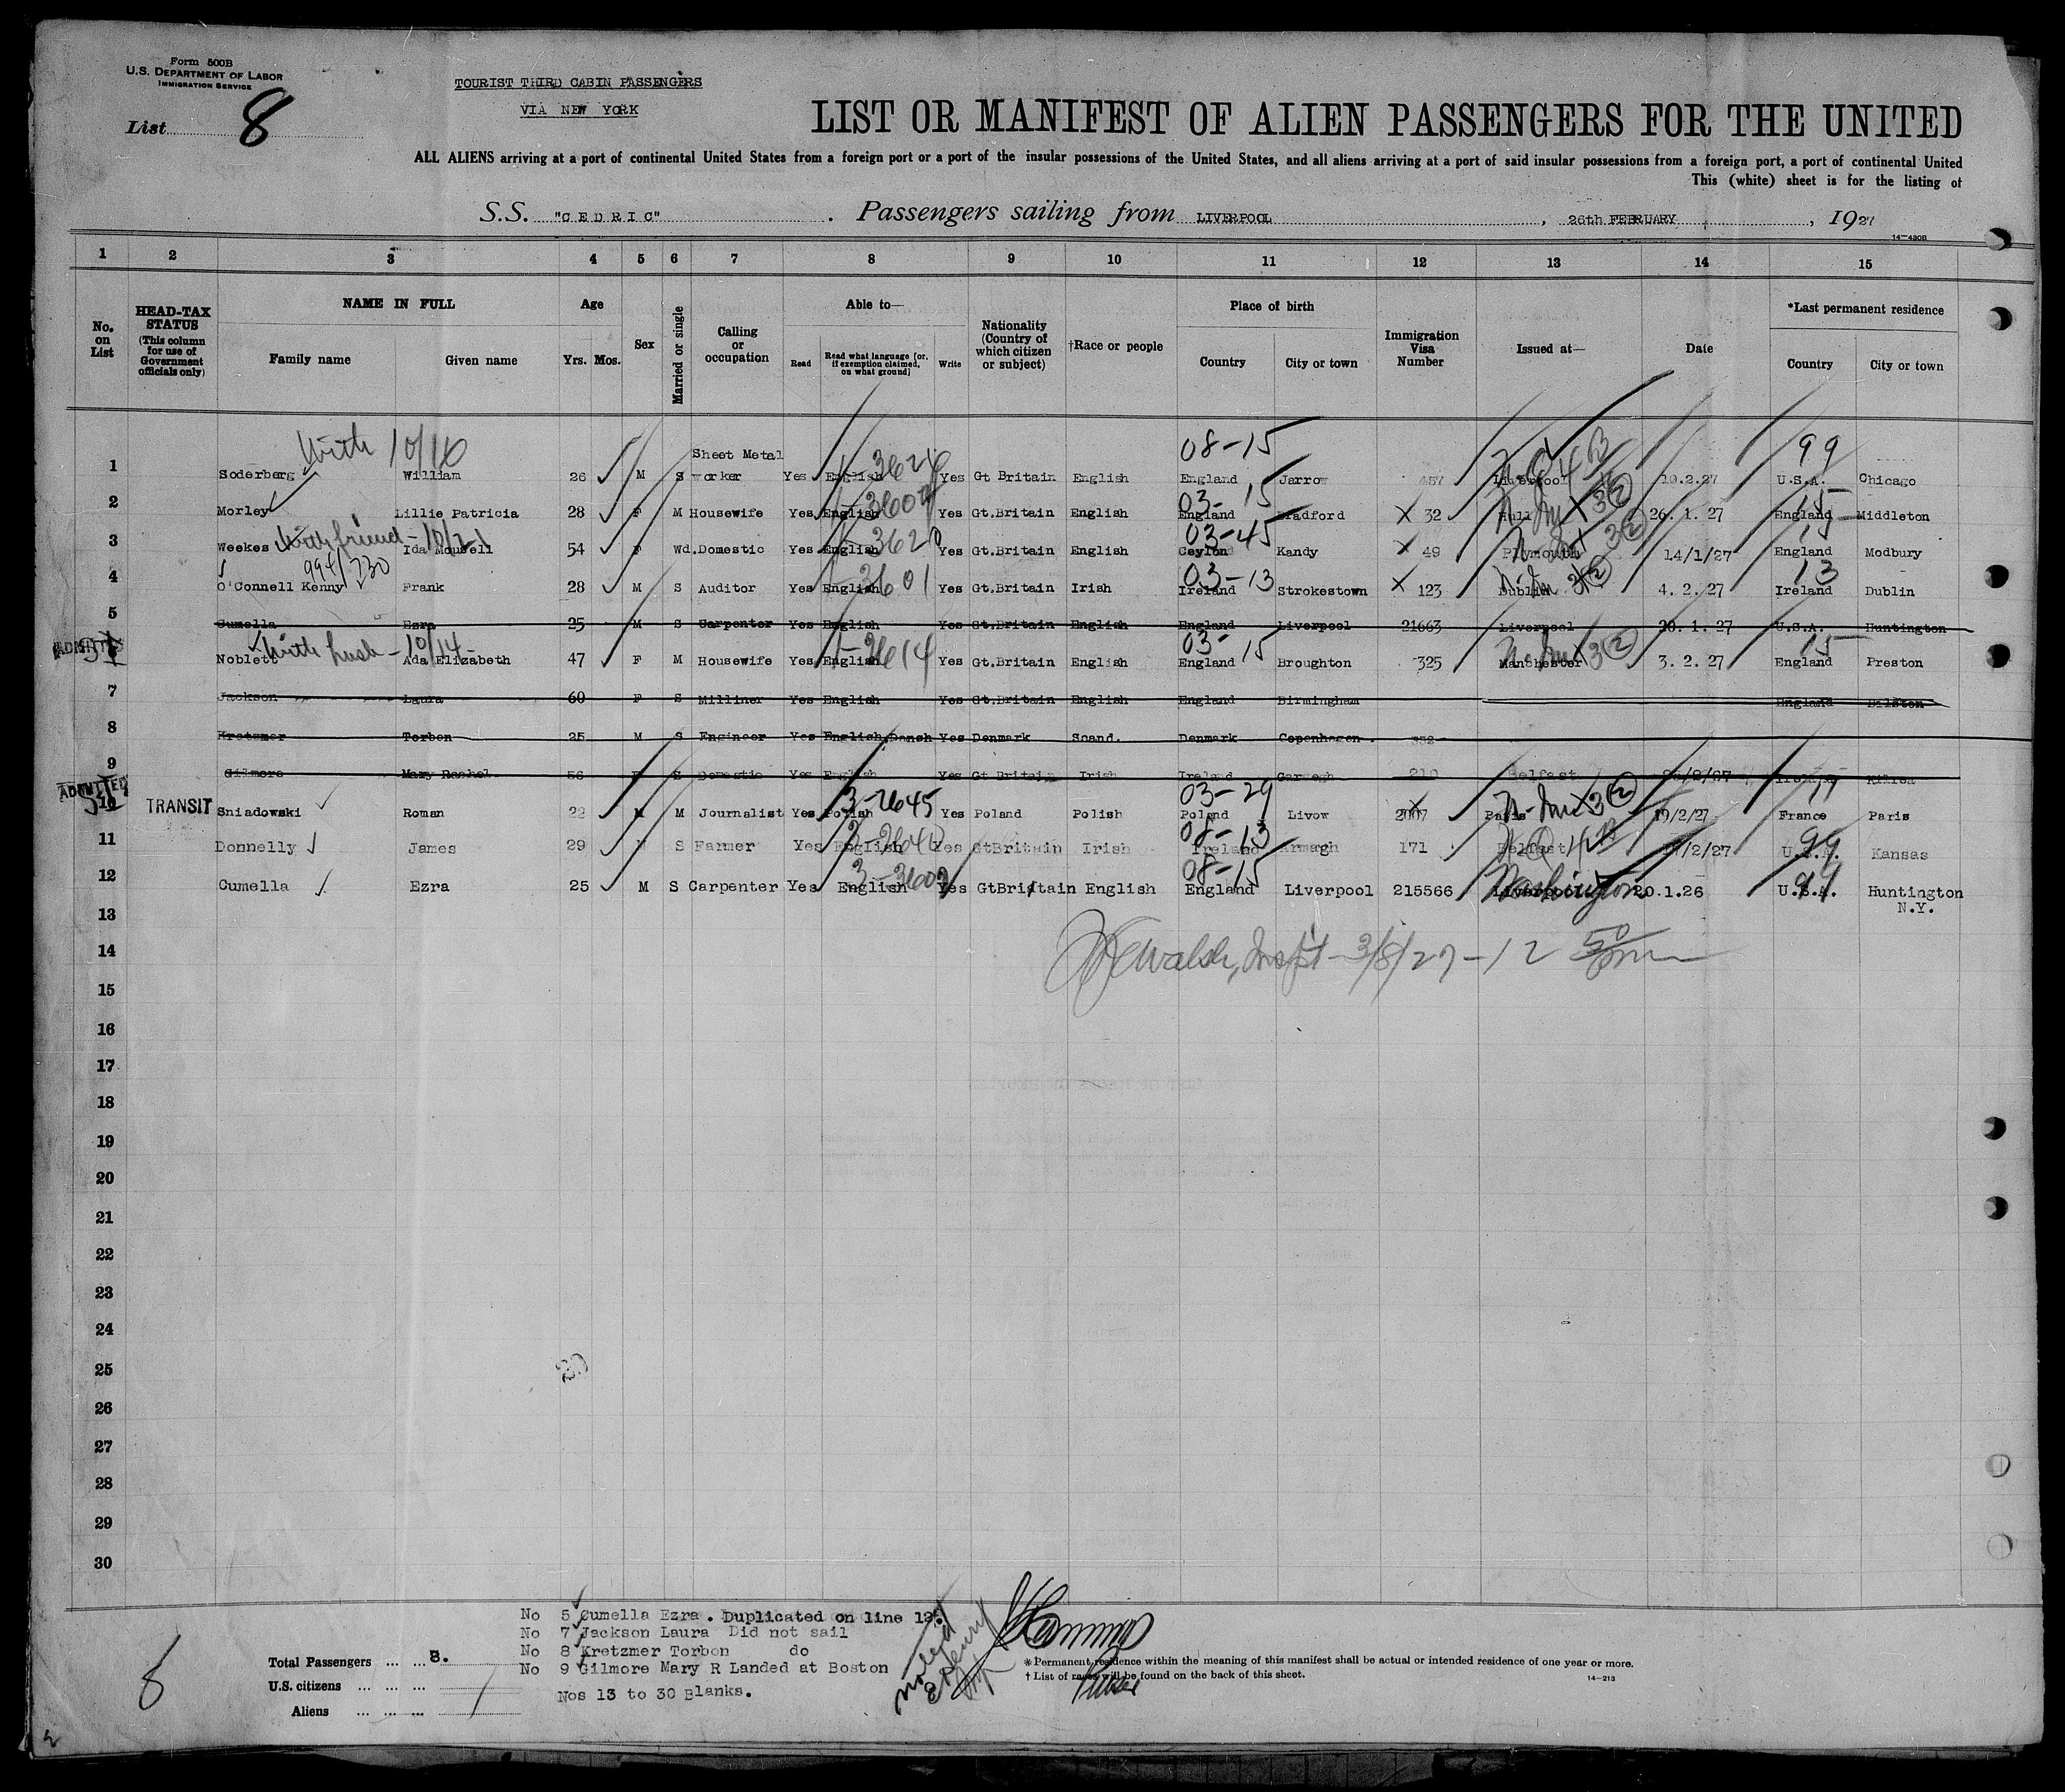 Form 500B
U.S. DEPARTMENT OF LABOR
IMMIGRATION SERVICE
List 8
TOURIST THIRD CABIN PASSENGERS
VIA NEW YORK
LIST OR MANIFEST OF ALIEN PASSENGERS FOR THE UNITED
ALL ALIENS arriving at a port of continental United States from a foreign port or a port of the insular possessions of the United States, and all aliens arriving at a port of said insular possessions from a foreign port, a port of continental United
This (white) sheet is for the listing of
S.S. "CEDRIC" . Passengers sailing from LIVERPOOL , 26th FEBRUARY , 1927
14-430B
1 2 3 4 5 6 7 8 9 10 11 12 13 14 15
No. on List
HEAD-TAX STATUS (This column for use of Government officials only)
NAME IN FULL
Family name Given name
Age
Yrs. Mos.
Sex
Married or single
Calling or occupation
Able to—
Read
Read what language [or, if exemption claimed, on what ground]
Write
Nationality (Country of which citizen or subject)
†Race or people
Place of birth
Country City or town
Immigration Visa Number
Issued at—
Date
*Last permanent residence
Country City or town
With 10/16 08-15 99
1 Soderberg William 26 M S Sheet Metal worker Yes English 3626 Yes Gt Britain English England Jarrow 457 Liverpool 10.2.27 U.S.A. Chicago
03-15 15
2 Morley Lillie Patricia 28 F M Housewife Yes English Yes Gt.Britain English England Bradford X 32 Hull 26. 1. 27 England Middleton
With friend - 10/21 03-45 15
3 Weekes Ida Mousell 54 F Wd. Domestic Yes English 3620 Yes Gt.Britain English Ceylon Kandy X 49 Plymouth 14/1/27 England Modbury
994/730 03-13 13
4 O'Connell Kenny Frank 28 M S Auditor Yes English 3601 Yes Gt.Britain Irish Ireland Strokestown X 123 Dublin 4. 2. 27 Ireland Dublin
5 Cumella Ezra 25 M S Carpenter Yes English Yes Gt.Britain English England Liverpool 21663 Liverpool 20. 1. 27 U.S.A. Huntington
ADMITTED With husb - 10/14 03-15 15
Noblett Ada Elizabeth 47 F M Housewife Yes English 3614 Yes Gt.Britain English England Broughton 325 Manchester 3. 2. 27 England Preston
7 Jackson Laura 60 F S Milliner Yes English Yes Gt.Britain English England Birmingham England Bilston
8 Kretzmer Torben 25 M S Engineer Yes English, Dansh Yes Denmark Scand. Denmark Copenhagen 332
9 Gilmore Mary Rachel 56 F S Domestic Yes English Yes Gt Britain Irish Ireland Garvagh 210 Belfast Ireland Kilrea
ADMITTED 3-2645 03-29
10 TRANSIT Sniadowski Roman 28 M M Journalist Yes Polish Yes Poland Polish Poland Livow 2007 Paris 19/2/27 France Paris
08-13 99
11 Donnelly James 29 M S Farmer Yes English Yes GtBritain Irish Ireland Armagh 171 Belfast /2/27 U.S.A. Kansas
08-15 99
12 Cumella Ezra 25 M S Carpenter Yes English Yes GtBritain English England Liverpool 215566 Liverpool Washington 20.1.26 U.S.A. Huntington N.Y.
13
14 Walsh, Inspt - 3/8/27 - 12 50 pm
15
16
17
18
19
20
21
22
23
24
25
26
27
28
29
30
No 5 Cumella Ezra. Duplicated on line 12.
No 7 Jackson Laura Did not sail
No 8 Kretzmer Torbon do
No 9 Gilmore Mary R Landed at Boston
Nos 13 to 30 Blanks.
8
Total Passengers ... ... 8.
U.S. citizens ... ... ...
Aliens ... ... ...
Purser
*Permanent residence within the meaning of this manifest shall be actual or intended residence of one year or more.
†List of races will be found on the back of this sheet.
14-213